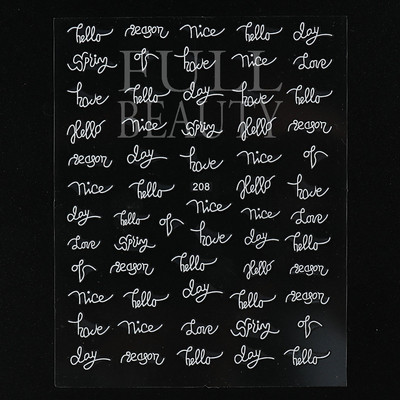 hello season Nice hello day
Spring of have Nice Love
FULL
have hello day have hello
BEAUTY
Hello Nice Spring Hello season
season day have Nice of
Nice hello 208 Hello have
day hello of Nice Nice Love
Love Spring have day hello
of season hello Hello season
Nice hello day hello season
have Nice Love Spring of
day season hello day hello